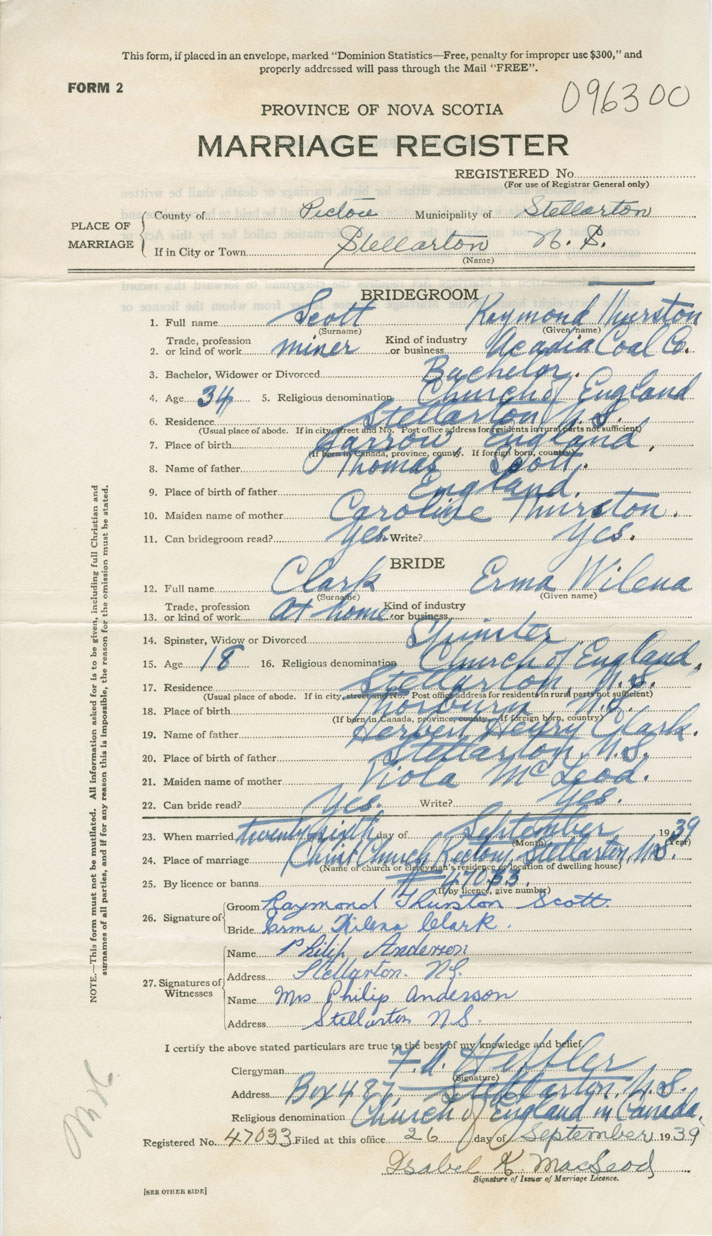 This form, if placed in an envelope, marked "Dominion Statistics—Free, penalty for improper use $300," and
properly addressed will pass through the Mail "FREE".
FORM 2
096300
PROVINCE OF NOVA SCOTIA
MARRIAGE REGISTER
REGISTERED No.
(For use of Registrar General only)
PLACE OF MARRIAGE
County of Pictou Municipality of Stellarton
If in City or Town Stellarton N. S.
(Name)
BRIDEGROOM
1. Full name Scott Raymond Thurston
(Surname) (Given name)
2. Trade, profession or kind of work miner Kind of industry or business Acadia Coal Co.
3. Bachelor, Widower or Divorced Bachelor.
4. Age 34 5. Religious denomination Church of England
6. Residence Stellarton N.S.
(Usual place of abode. If in city, street and No. Post office address for residents in rural parts not sufficient)
7. Place of birth Jarrow England.
(If born in Canada, province, county. If foreign born, country)
8. Name of father Thomas Scott.
9. Place of birth of father England.
10. Maiden name of mother Caroline Thurston.
11. Can bridegroom read? Yes. Write? Yes.
BRIDE
12. Full name Clark Erma Wilena
(Surname) (Given name)
13. Trade, profession or kind of work At home Kind of industry or business
14. Spinster, Widow or Divorced Spinster
15. Age 18 16. Religious denomination Church of England.
17. Residence Stellarton, N.S.
(Usual place of abode. If in city, street and No. Post office address for residents in rural parts not sufficient)
18. Place of birth Thorburn, N.S.
(If born in Canada, province, county. If foreign born, country)
19. Name of father Henry Clark.
20. Place of birth of father Stellarton, N.S.
21. Maiden name of mother Viola McLeod.
22. Can bride read? Yes. Write? Yes.
23. When married twenty sixth day of September 1939
(Month) (Year)
24. Place of marriage Christ Church Rectory, Stellarton, N.S.
(Name of church or clergyman's residence or location of dwelling house)
25. By licence or banns 47033.
(If by licence, give number)
26. Signature of
Groom Raymond Thurston Scott.
Bride Erma Wilena Clark.
27. Signatures of Witnesses
Name Philip Anderson
Address Stellarton. N.S.
Name Mrs Philip Anderson
Address Stellarton N.S.
I certify the above stated particulars are true to the best of my knowledge and belief.
Clergyman F. A. Heffler
(Signature)
Address Box 487, Stellarton, N.S.
Religious denomination Church of England in Canada.
Registered No. 47033 Filed at this office 26 day of September 1939
Isabel K MacLeod
Signature of Issuer of Marriage Licence.
[SEE OTHER SIDE]
NOTE.—This form must not be mutilated. All information asked for is to be given, including full Christian and
surnames of all parties, and if for any reason this is impossible, the reason for the omission must be stated.